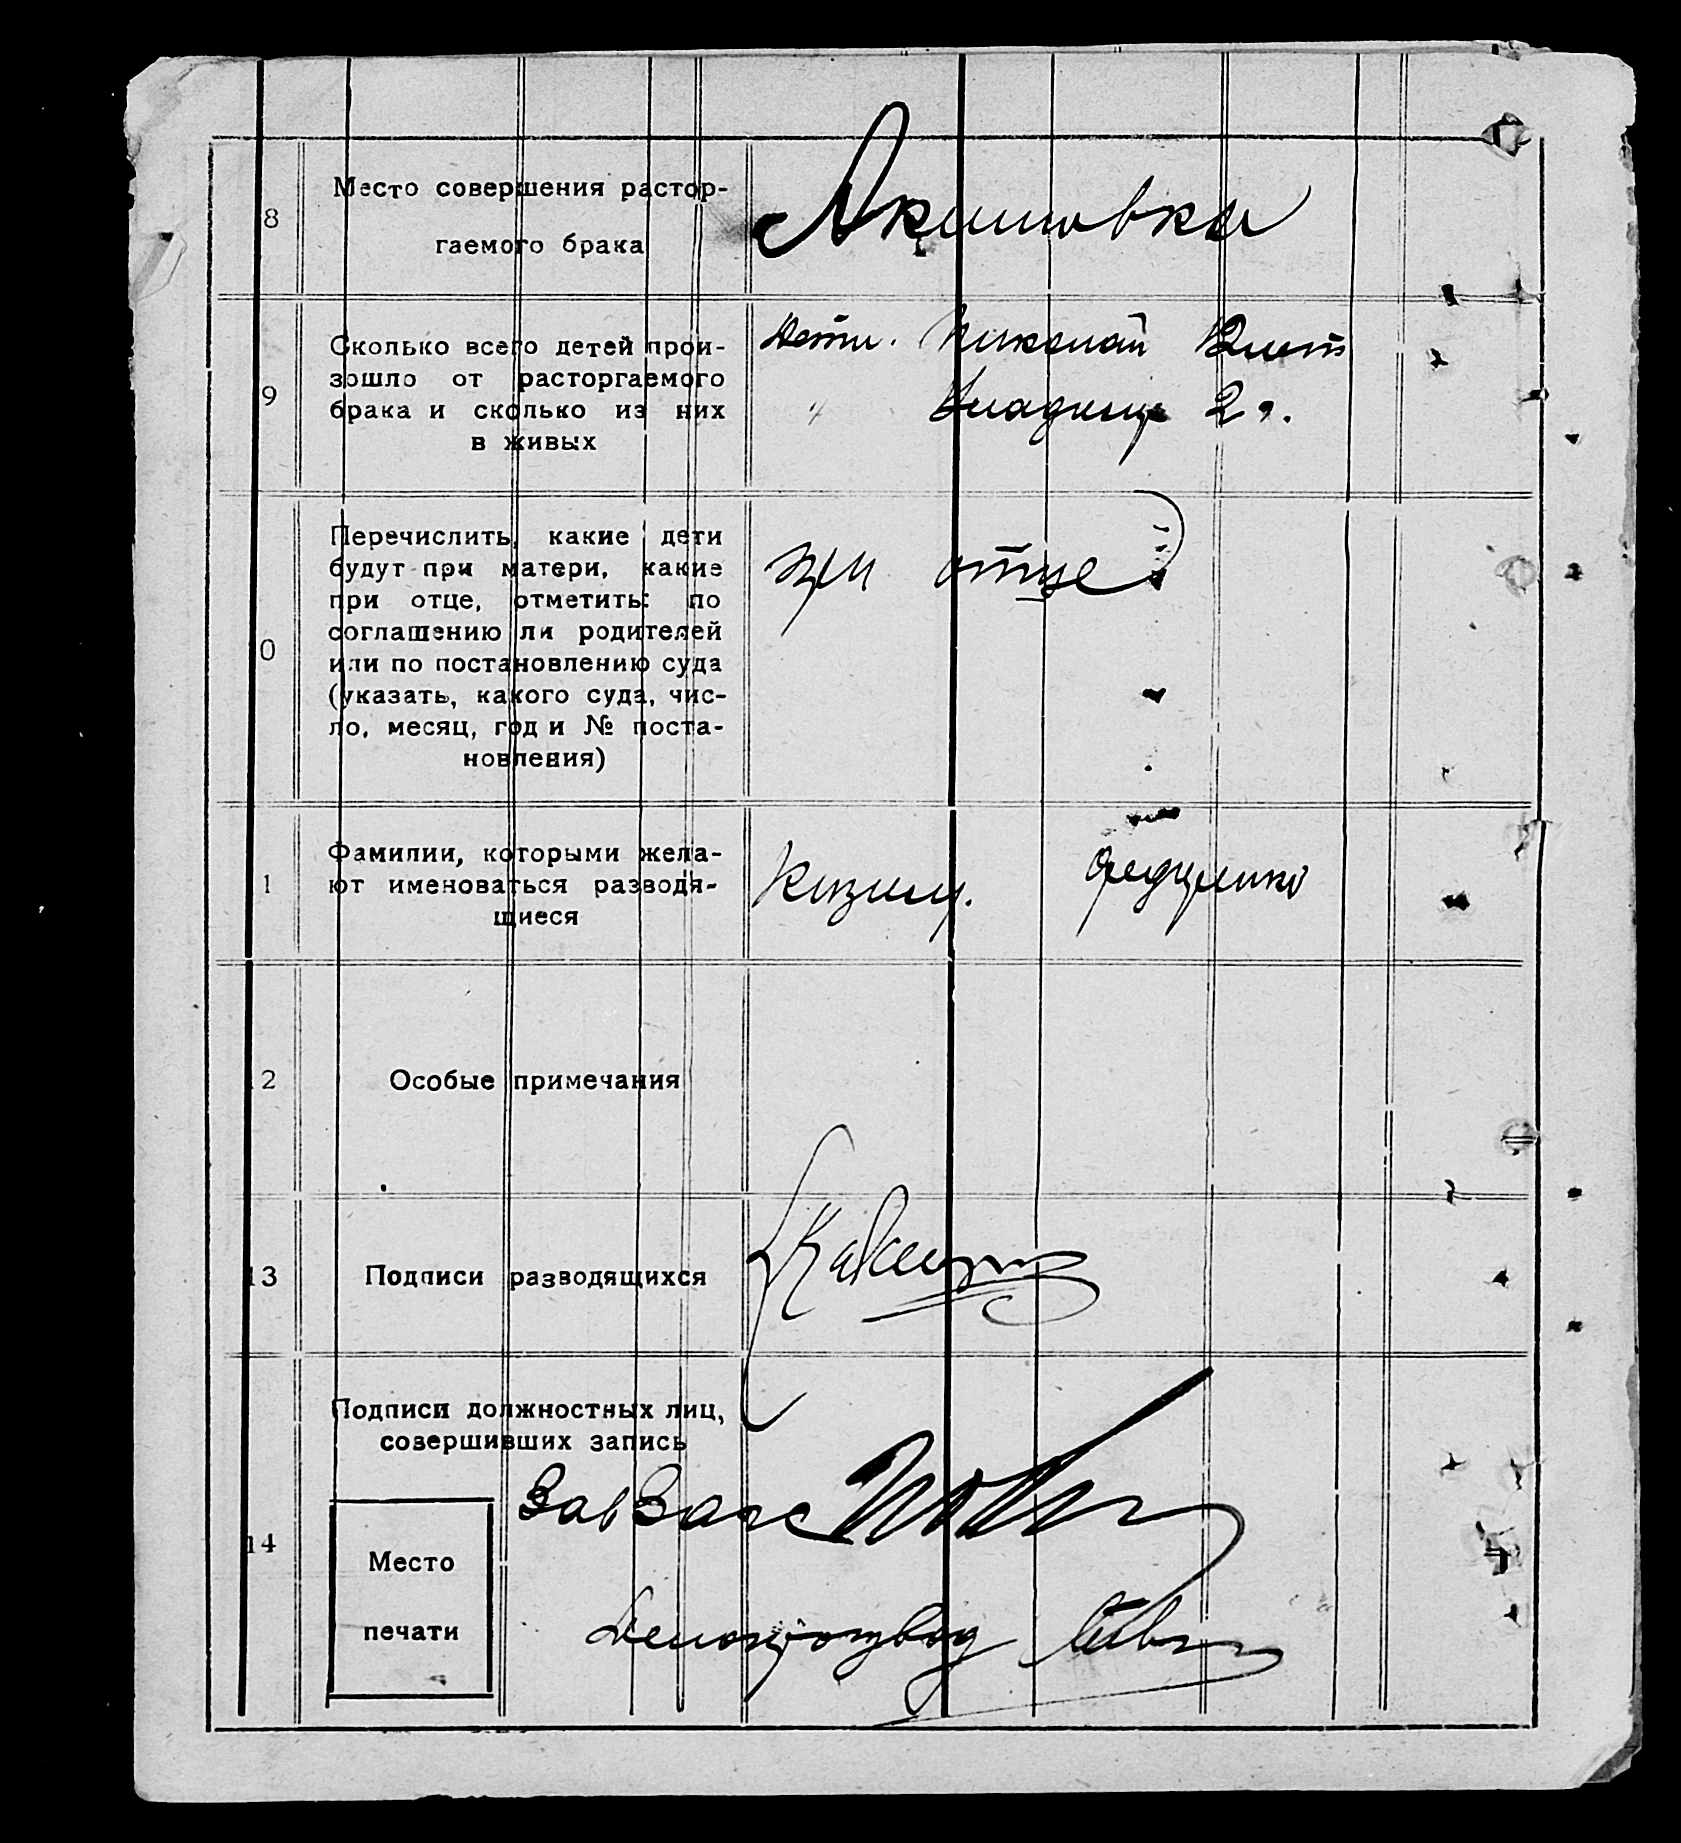 8
Место совершения растор-
гаемого брака
Акимовка
9
Сколько всего детей прои-
зошло от расторгаемого
брака и сколько из них
в живых
Дети. Николай
" Владимир 2 г.
0
Перечислить, какие дети
будут при матери, какие
при отце, отметить: по
соглашению ли родителей
или по постановлению суда
(указать, какого суда, чис-
ло, месяц, год и № поста-
новления)
при отце
1
Фамилии, которыми жела-
ют именоваться разводя-
щиеся
2
Особые примечания
13
Подписи разводящихся
14
Подписи должностных лиц,
совершивших запись
ЗавЗагс
Место
печати
Делопроизвод